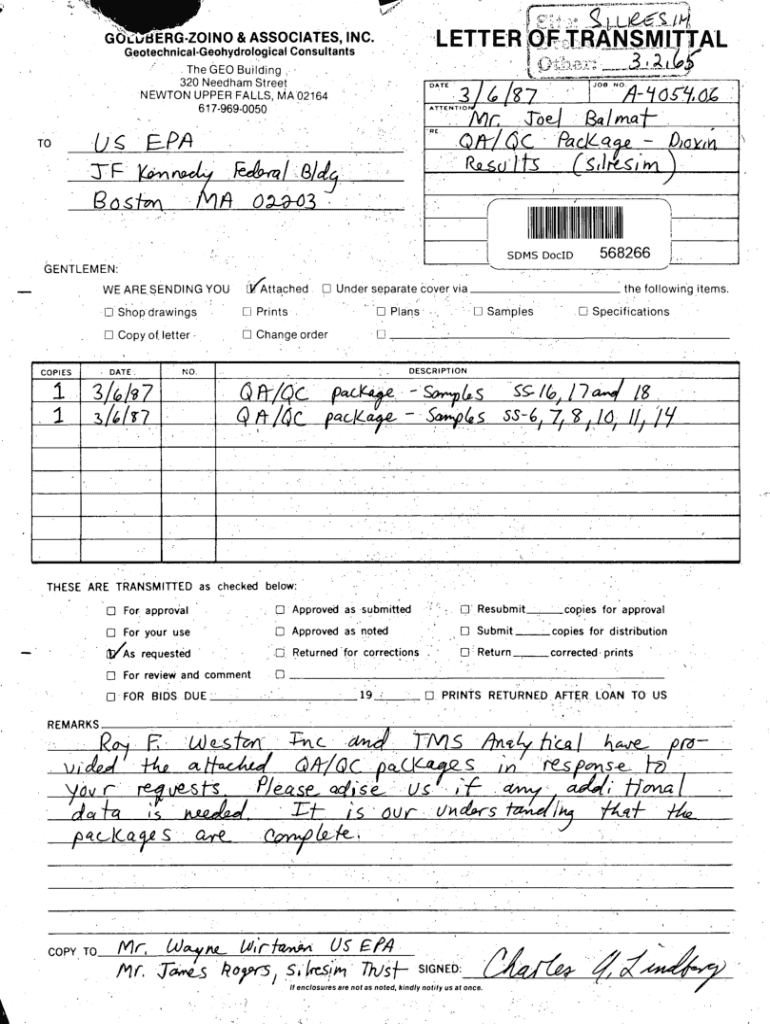 Site: SILRESIM
GOLDBERG-ZOINO & ASSOCIATES, INC.
LETTER OF TRANSMITTAL
Geotechnical-Geohydrological Consultants
Other: 3.2.65
The GEO Building
320 Needham Street
NEWTON UPPER FALLS, MA 02164
617-969-0050
DATE 3/6/87
JOB NO. A-4054.06
ATTENTION Mr. Joel Balmat
RE: QA/QC Package - Dioxin
Results (Silresim)
TO US EPA
JF Kennedy Federal Bldg
Boston MA 02203
SDMS DocID 568266
GENTLEMEN:
WE ARE SENDING YOU ☑ Attached ☐ Under separate cover via the following items.
☐ Shop drawings ☐ Prints ☐ Plans ☐ Samples ☐ Specifications
☐ Copy of letter ☐ Change order ☐
COPIES DATE NO. DESCRIPTION
1 3/6/87 QA/QC package - Samples SS-16, 17 and 18
1 3/6/87 QA/QC package - Samples SS-6, 7, 8, 10, 11, 14
THESE ARE TRANSMITTED as checked below:
☐ For approval ☐ Approved as submitted ☐ Resubmit copies for approval
☐ For your use ☐ Approved as noted ☐ Submit copies for distribution
☑ As requested ☐ Returned for corrections ☐ Return corrected prints
☐ For review and comment ☐
☐ FOR BIDS DUE 19 ☐ PRINTS RETURNED AFTER LOAN TO US
REMARKS
Roy F. Weston Inc and TMS Analytical have pro-
vided the attached QA/QC packages in response to
your requests. Please adise us if any additional
data is needed. It is our understanding that the
packages are complete.
COPY TO Mr. Wayne Wirtanen US EPA
Mr. James Rogers, Silresim Trust
SIGNED: Charles A. Lindberg
If enclosures are not as noted, kindly notify us at once.